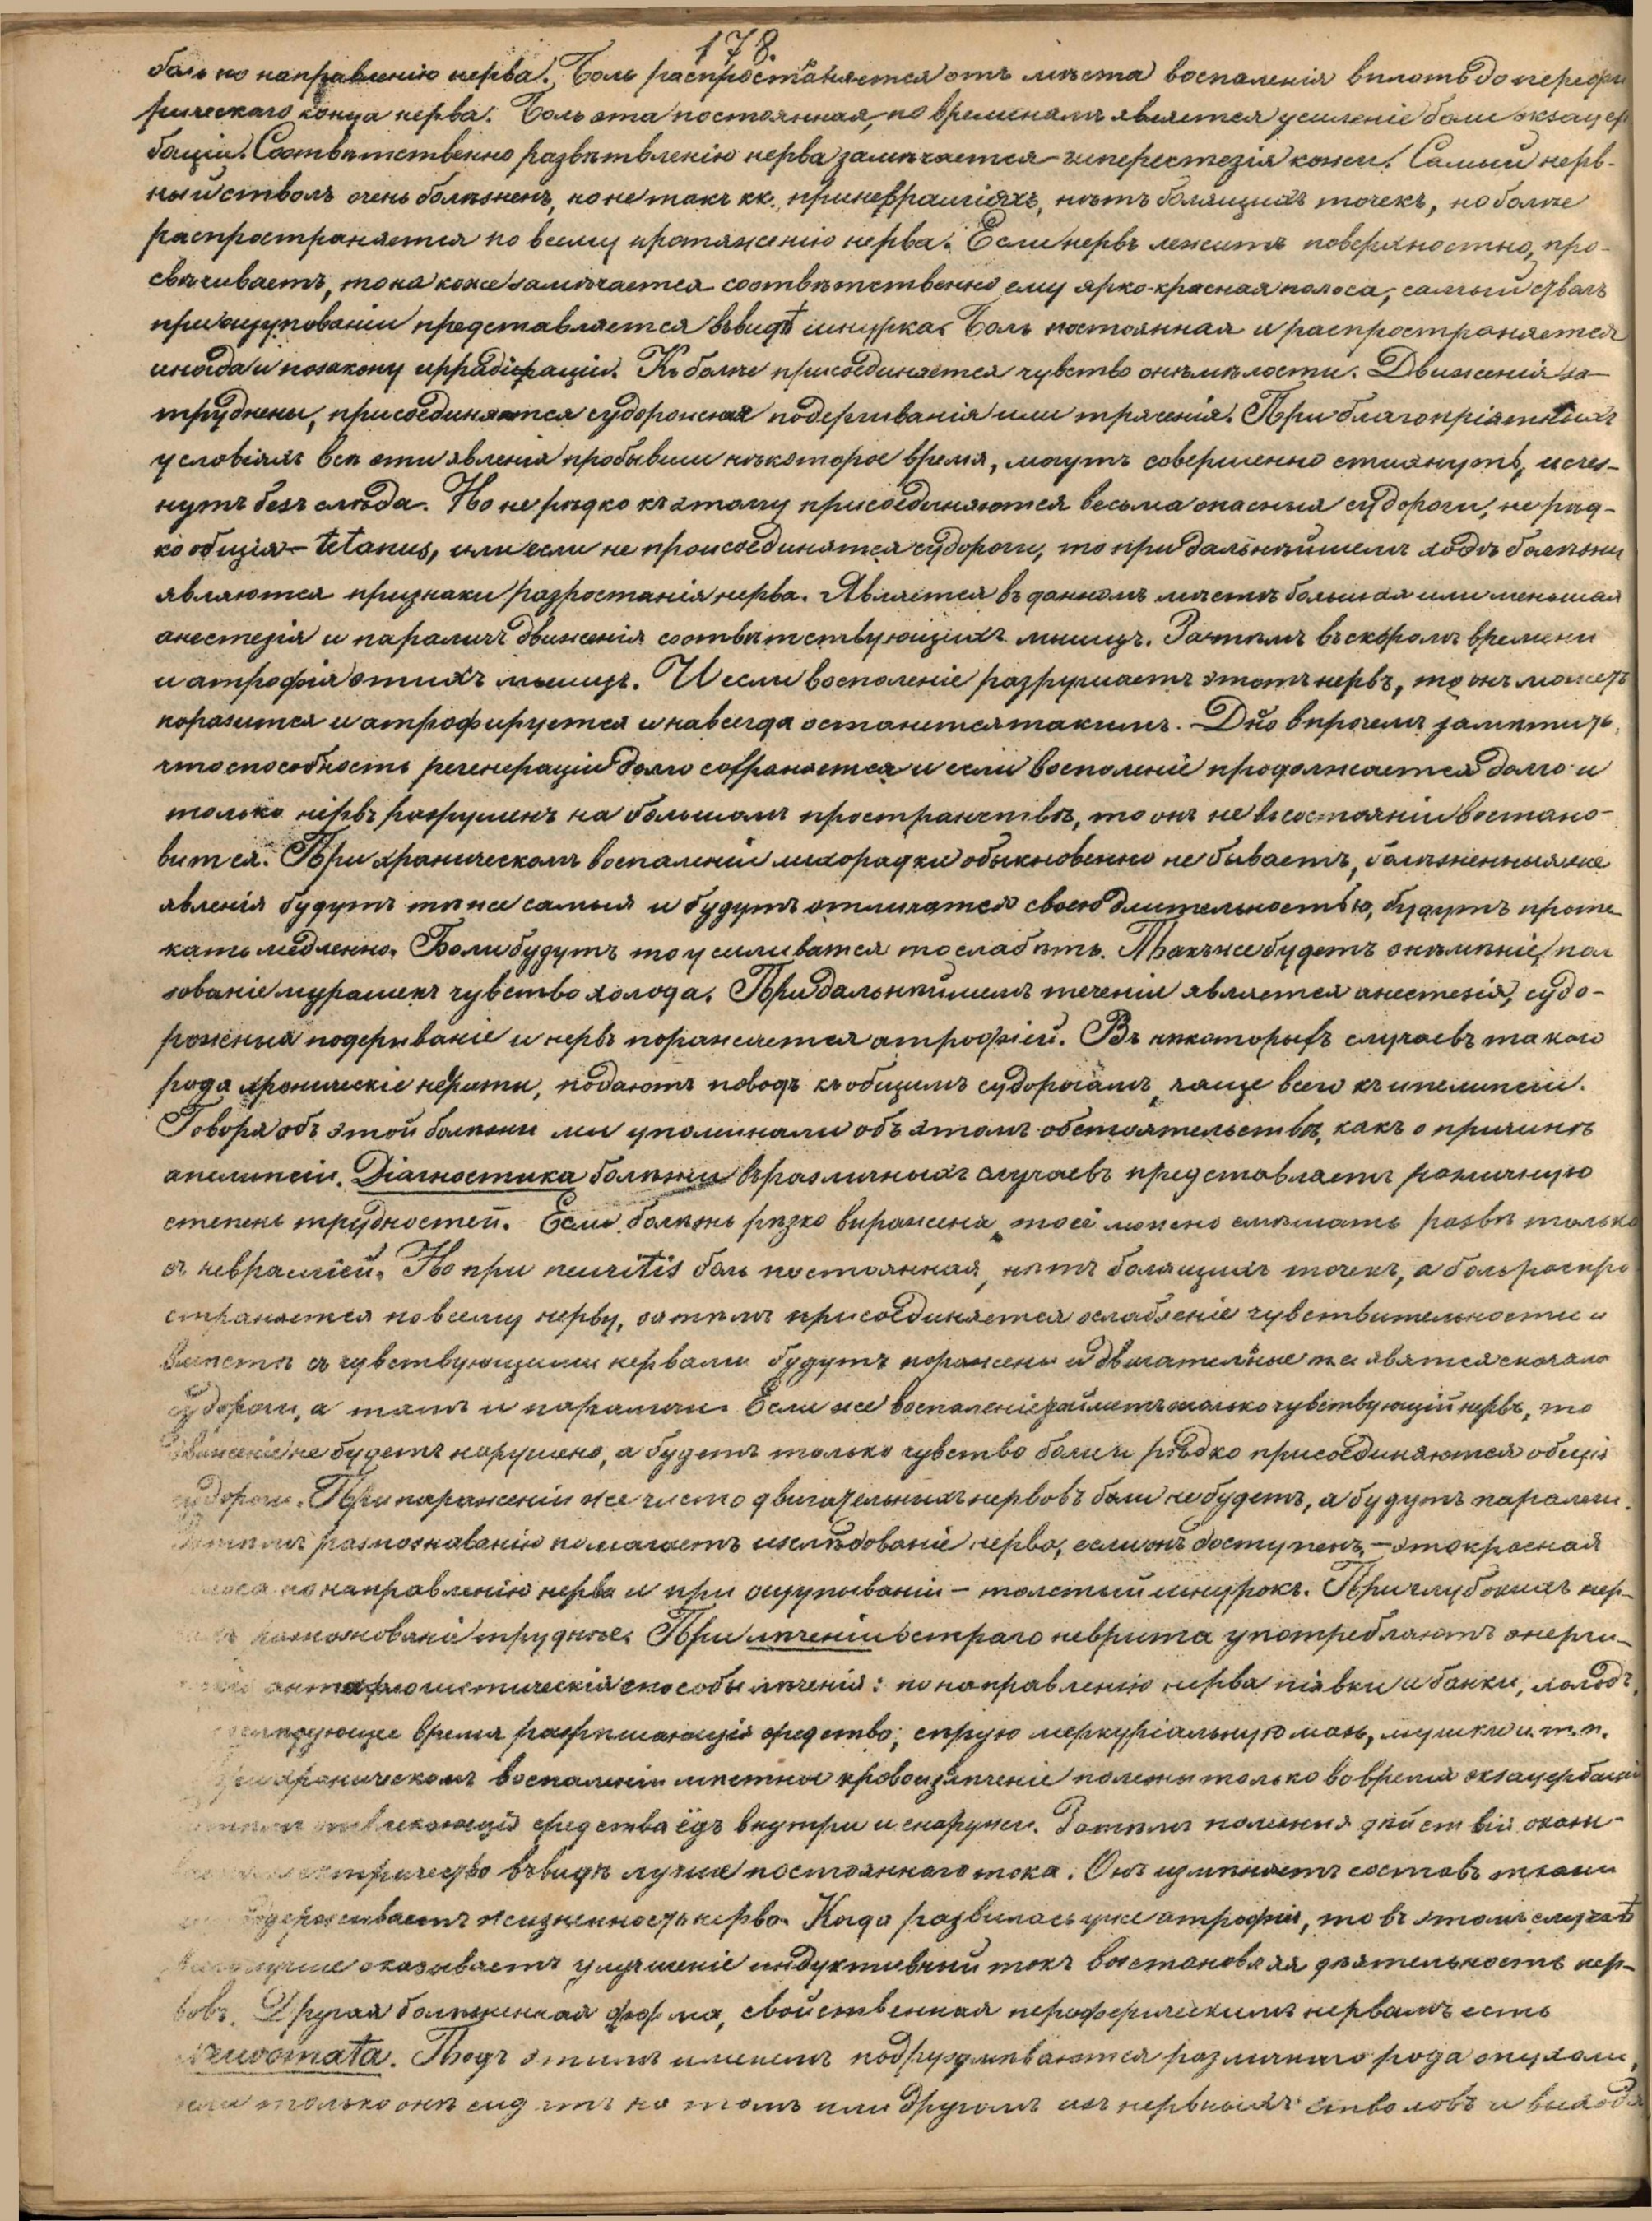 178.
боль по направленію нерва. Боль распространяется отъ мѣста воспаленія вплоть до перефе
рическаго конца нерва. Боль эта постоянная, по временамъ является усиленіе боли экзацер
баціи. Соотвѣтственно развѣтвленію нерва замѣчается гиперестезія кожи. Самый нерв-
ный стволъ очень болѣзненъ, но не такъ кк. при невралгіяхъ, нѣтъ болящихъ точекъ, но болѣе
распространяется по всему протяженію нерва. Если нервъ лежитъ поверхностно, про-
свѣчиваетъ, то на коже замѣчается соотвѣтственно ему ярко-красная полоса, самый стволъ
при ощупованіи представляется въ видѣ шнурка. Боль постоянная и распространяется
иногда и по закону иррадіаціи. Къ болѣе присоединяется чувство онѣмѣлости. Движенія за-
труднены, присоединяются судорожная подергиванія или трясенія. При благопріятныхъ
условіяхъ всѣ эти явленія пробывши нѣкоторое время, могутъ совершенно стихнуть, исчез-
нутъ безъ слѣда. Но не рѣдко къ этому присоединяются весьма опасныя судороги, не рѣд-
ко общія – tetanus, или если не присоединятся судороги, то при дальнѣйшемъ ходѣ болѣзни
являются признаки разростанія нерва. Является въ данномъ мѣстѣ большая или меньшая
анестезія и параличъ движенія соотвѣтствующихъ мышцъ. Затѣмъ въ скоромъ времени
и атрофія этихъ мышцъ. И если воспаленіе разрушаетъ этотъ нервъ, то онъ можетъ
поразится и атрофируется и навсегда останется такимъ. Дно впрочемъ замѣтить,
что способность регенераціи долго сохраняется и если воспаленіе продолжается долго и
только нервъ разрушенъ на большомъ пространствѣ, то онъ не въ состояніи востано-
вится. При хроническомъ воспаленіи лихорадки обыкновенно не бываетъ, болѣзненныя же
явленія будутъ тѣ же самыя и будутъ отличатся своею длительностью, будутъ проте
кать медленно. Боли будутъ то усиливатся то слабѣть. Такъ же будетъ онѣмѣніе, пол
зованіе мурашекъ чувство холода. При дальнѣйшемъ теченіи является анестезія, судо-
рожныя подергиваніе и нервъ поражается атрофіей. Въ нѣкоторыхъ случаевъ такого
рода хроническіе невриты, подаютъ поводъ къ общимъ судорогамъ, чаще всего къ эпелипсіи.
Говоря объ этой болѣзни ми упоминали объ этомъ обстоятельствѣ, какъ о причинѣ
эпелипсіи. Діагностика болѣзни въ различныхъ случаевъ представляетъ различную
степень трудностей. Если болѣзнь рѣзко виражена, то её можно смѣшать развѣ только
съ невралгіей. Но при neuritis боль постоянная, нѣтъ болящихъ точекъ, а боль распро
страняется по всему нерву, затѣмъ присоединяется ослабленіе чувствительности и
вмѣстѣ съ чувствующими нервами будутъ поражены и двигательные т.е. явятся сначала
судороги, а тамъ и параличи. Если же воспаленіе займетъ только чувствующій нервъ, то
движеніе не будетъ нарушено, а будетъ только чувство боли и рѣдко присоединяются общія
судороги. При пораженіи же чисто двигательныхъ нервовъ боли не будетъ, а будутъ параличи.
Затѣмъ распознаванію помагаетъ изслѣдованіе нерва, если онъ доступенъ, – это красная
полоса по направленію нерва и при ощупываніи – толстый шнурокъ. При глубокихъ нер-
вахъ распознованіе труднѣе. При лѣченіи остраго неврита употребляютъ энерги-
антифлогистическія способы лѣченія: по направленію нерва піявки и банки, холодъ,
слѣдующее время разрѣшающія средство; сѣрую меркуріальную мазь, мушки и.т.п.
При хроническомъ воспаленіи мѣстное кровоизлѣченіе полезны только во время экзацербаціи
отвлекающія средства ёдъ внутри и снаружи. Затѣмъ полезныя дѣйствія окаж-
электричество въ видѣ лучше постояннаго тока. Онъ измѣняетъ составъ ткани
поддерживаетъ жизненность нерва. Когда развилась уже атрофія, то въ этомъ случаѣ
наилучше оказываетъ улучшеніе индуктивный токъ востановляя дѣятельность нер-
вовъ. Другая болѣзненная форма, свойственная пероферическимъ нервамъ есть
Neuromata. Подъ этимъ именемъ подразумѣваются различнаго рода опухоли,
если только онѣ сидятъ на томъ или другомъ изъ нервныхъ стволовъ и выходя